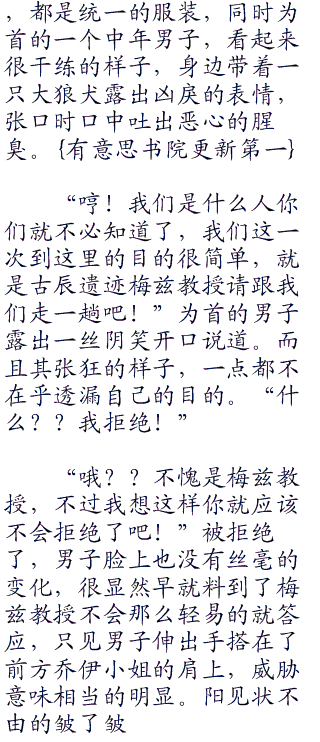 ，都是统一的服装，同时为
首的一个中年男子，看起来
很干练的样子，身边带着一
只大狼犬露出凶戾的表情，
张口时口中吐出恶心的腥
臭。{有意思书院更新第一}
“哼！我们是什么人你
们就不必知道了，我们这一
次到这里的目的很简单，就
是古辰遗迹梅兹教授请跟我
们走一趟吧！”为首的男子
露出一丝阴笑开口说道。而
且其张狂的样子，一点都不
在乎透漏自己的目的。“什
么？？我拒绝！”
“哦？？不愧是梅兹教
授，不过我想这样你就应该
不会拒绝了吧！”被拒绝
了，男子脸上也没有丝毫的
变化，很显然早就料到了梅
兹教授不会那么轻易的就答
应，只见男子伸出手搭在了
前方乔伊小姐的肩上，威胁
意味相当的明显。阳见状不
由的皱了皱